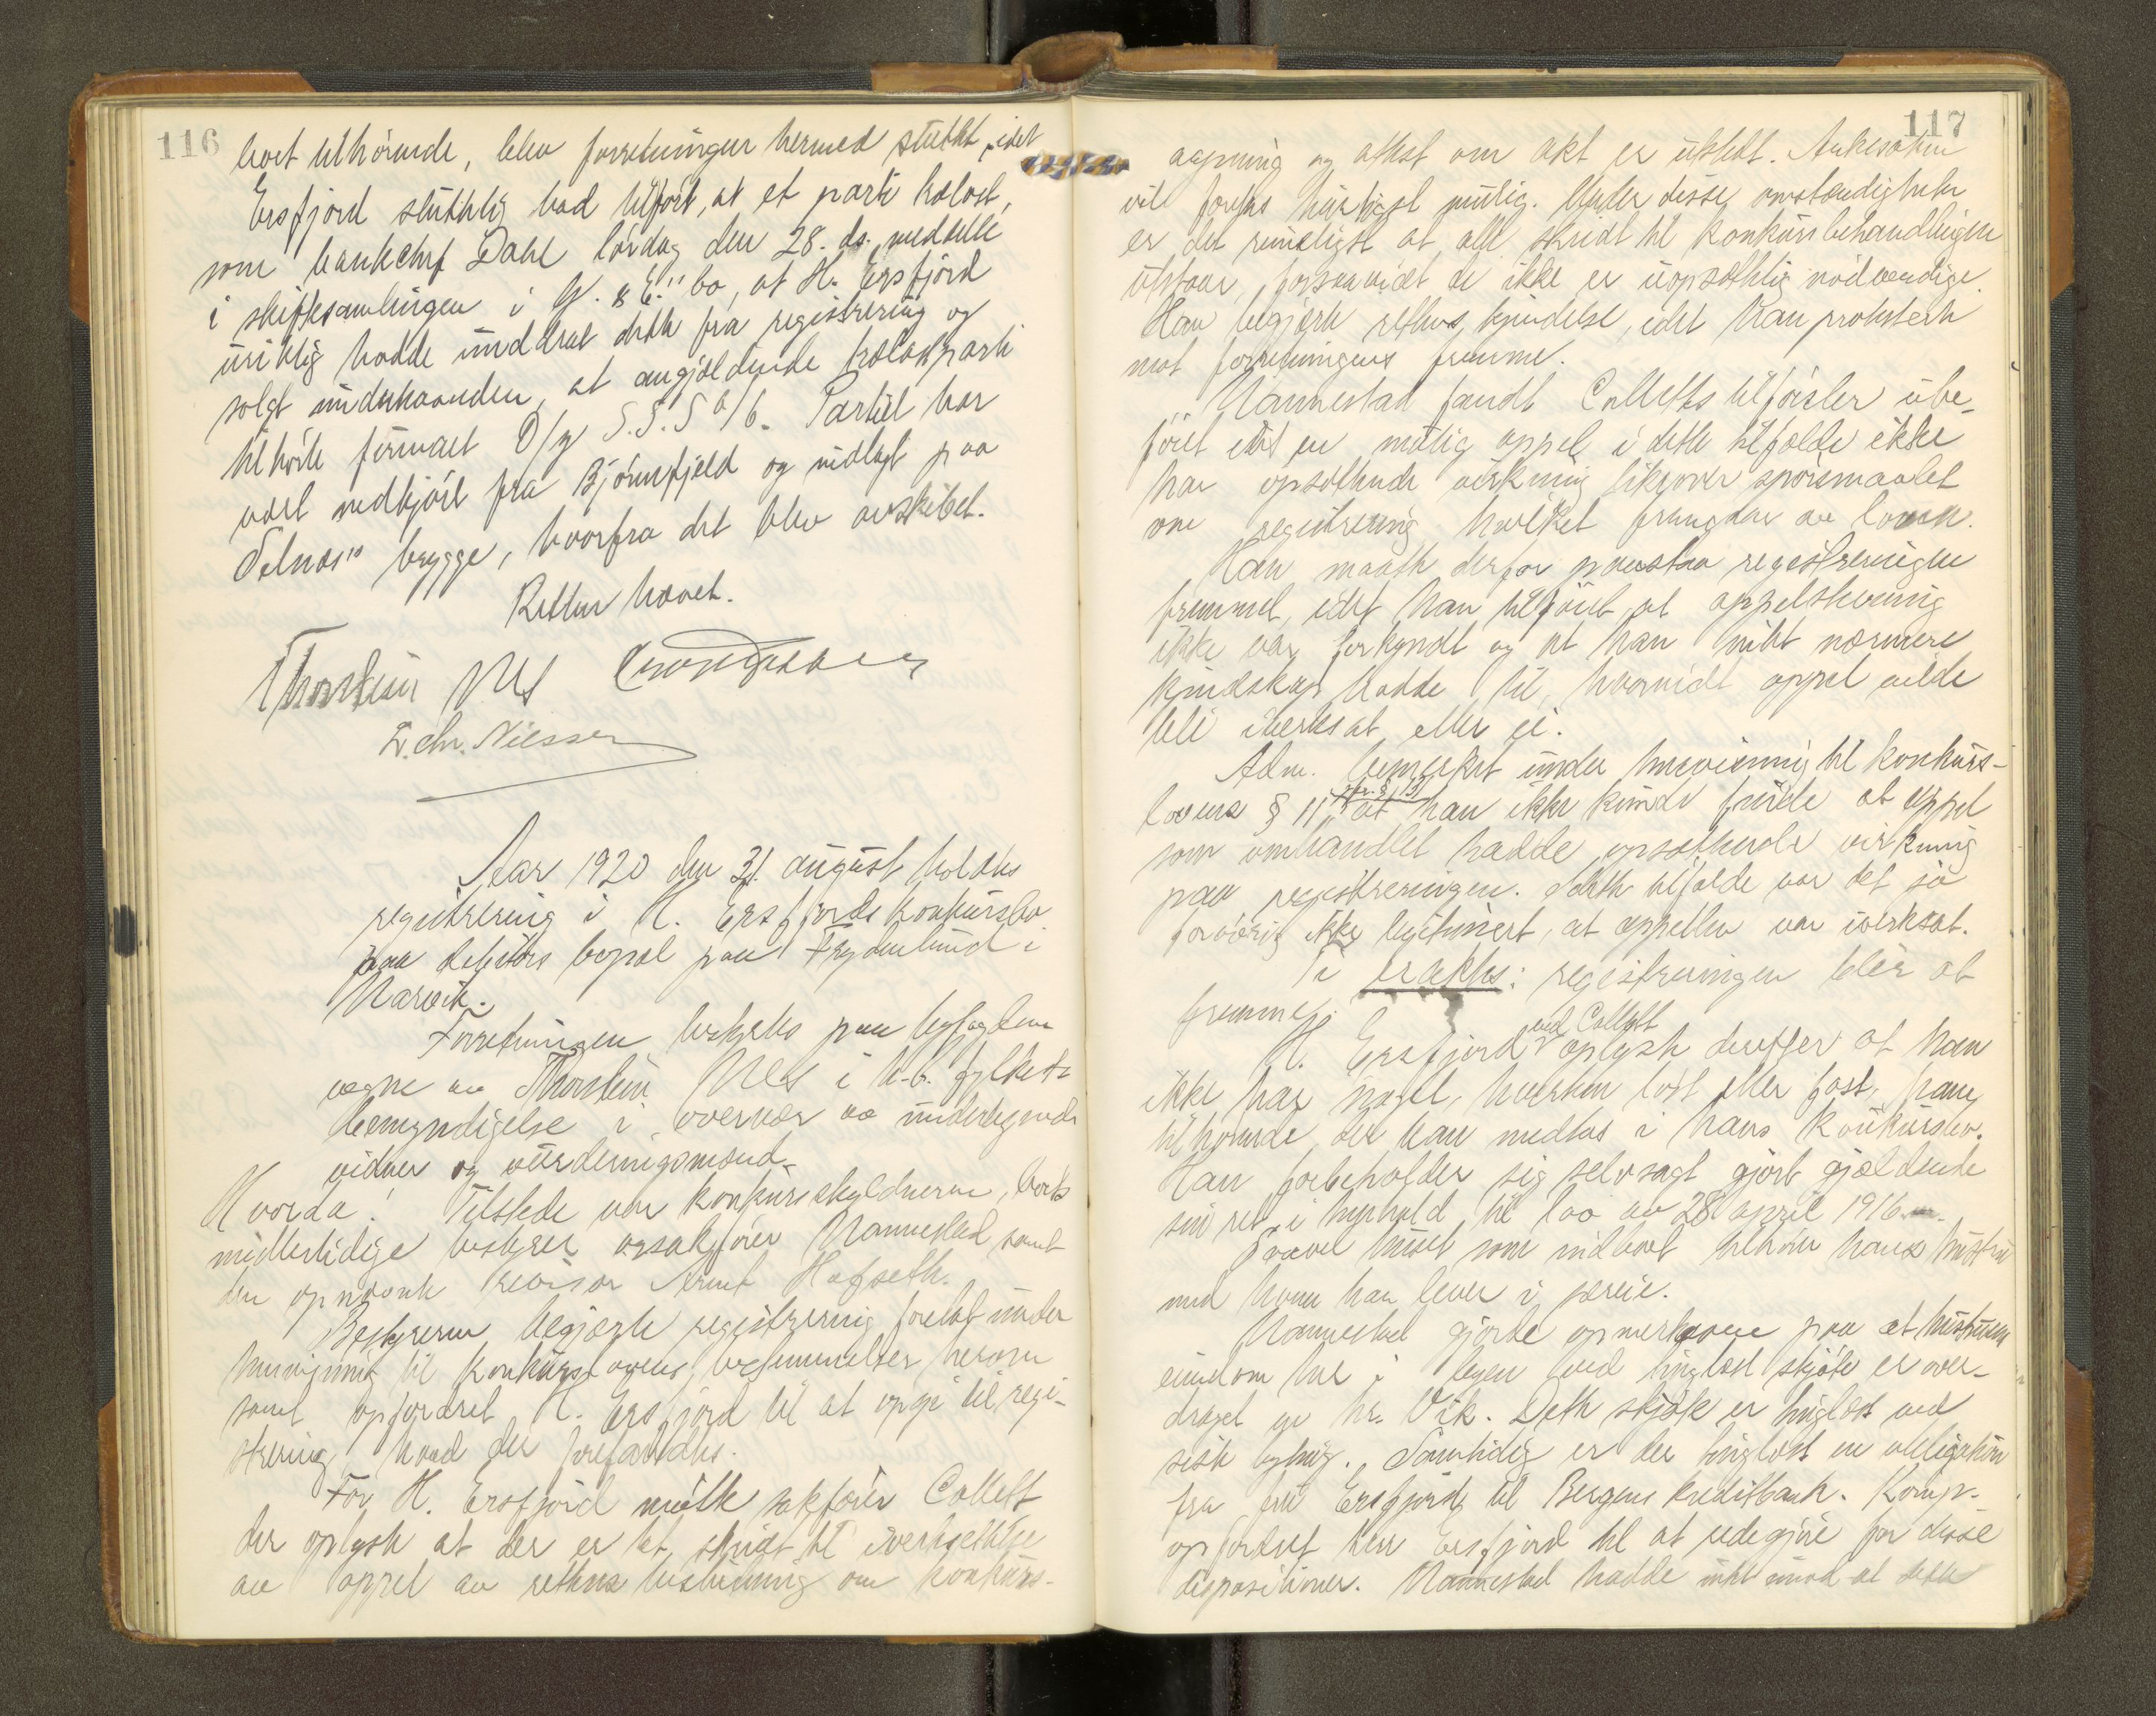 116
boet tilhørende, blev forretningen hermed sluttet, idet
Ersfjord sluttelig bad tilført, at et parti
som bankchef Dahl lørdag den 28. ds. meddelte
i skiftesamlingen i G. & E." bo, at H. Ersfjord
uriktig hadde unddrat dette fra registrering og
solgt underhaanden, at angjældende parti
tilhørte firmaet D/g S.S.S. Partiet har
vært nedkjørt fra Bjørnefjeld og nedlagt paa
"Selnæs" brygge, hvorfra det blev avskibet.
Retten hævet.
Thorstein Nes
L. Chr. Nilssen
Aar 1920 den 31. august holdtes
registrering i H. Ersfjords konkursbo
paa debitors bopæl paa Frydenlund i
Narvik.
Forretningen bestyrtes paa byfogdens
vegne av Thorstein Nes i h.t. fylkets
bemyndigelse i overvær av undertegnede
vidner og vurderingsmænd.
Hvorda! Tilstede var konkursskyldneren, boets
midlertidige bestyrer, orsakfører Nannestad samt
den opnævnte revisor Arnt Hofseth.
Bestyreren begjærte registrering foretat under
henvisning til konkurslovens bestemmelser herom
samt opfordret H. Ersfjord til at opgi til regi-
strering hvad der forefandtes.
For H. Ersfjord møtte sakfører Collett
der oplyste at der er tat skridt til iverksettelse
av appel av rettens beslutning om konkurs-
117
aapning og attest om akt er utstedt. Ankesaken
vil foretas hurtigst mulig. Under disse omstændigheter
er det rimeligst at alle skridt til konkursbehandlingen
utstaar, forsaavidt de ikke er uopsættelig nødvendige.
Han begjærte rettens kjendelse, idet han protesterte
mot forretningens fremme.
Nannestad fandt Colletts tilførsler ube-
føiet idet en mulig appel i dette tilfælde ikke
har opsættende virkning likeover spørsmaalet
om registrering hvilket fremgaar av loven.
Han maatte derfor paastaa registreringen
fremmet, idet han tilføiet at appelstevning
ikke var forkyndt og at han intet nærmere
kjendskap hadde til, hvorvidt appel vilde
bli iverksat eller ei.
Adm. bemerket under henvisning til konkurs-
lovens § 11 jfr. § 131 at han ikke kunde finde at appel
som omhandlet hadde opsættende virkning
paa registreringen. I dette tilfælde var det jo
forøvrig ikke legitimert, at appellen var iverksat.
Ti eragtes: registreringen blir at
fremme.
H. Ersfjord ved Collett oplyste derefter at han
ikke har noget, hverken løst eller fast, ham
tilhørende, der kan medtas i hans konkursbo.
Han forbeholder sig selvsagt gjort gjældende
sin ret i henhold til lov av 28 april 1916.
Saavel huset som indboet tilhører hans hustru
med hvem han lever i særeie.
Nannestad gjorde opmerksom paa at hustruens
eiendom her i byen ved tinglæst skjøte er over-
draget av hr. Vik. Dette skjøte er tinglæst ved
siste byting. Samtidig er der tinglæst en obligation
fra fru Ersfjord til Bergens kreditbank. Komp.
opfordret herr Ersfjord til at redegjøre for disse
dispositioner. Nannestad hadde intet imod at dette